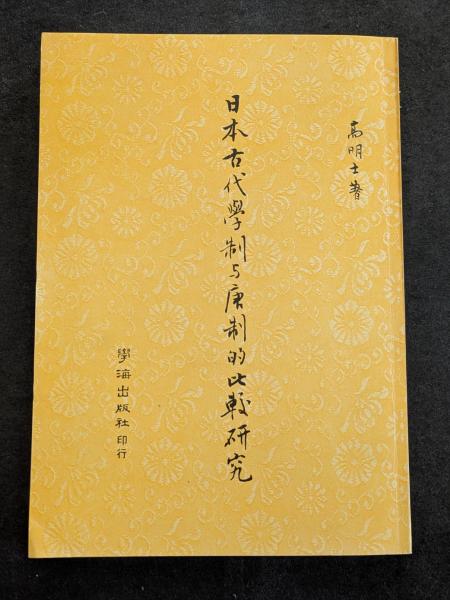 高明士著
日本古代學制与唐制的比較研究
學海出版社印行